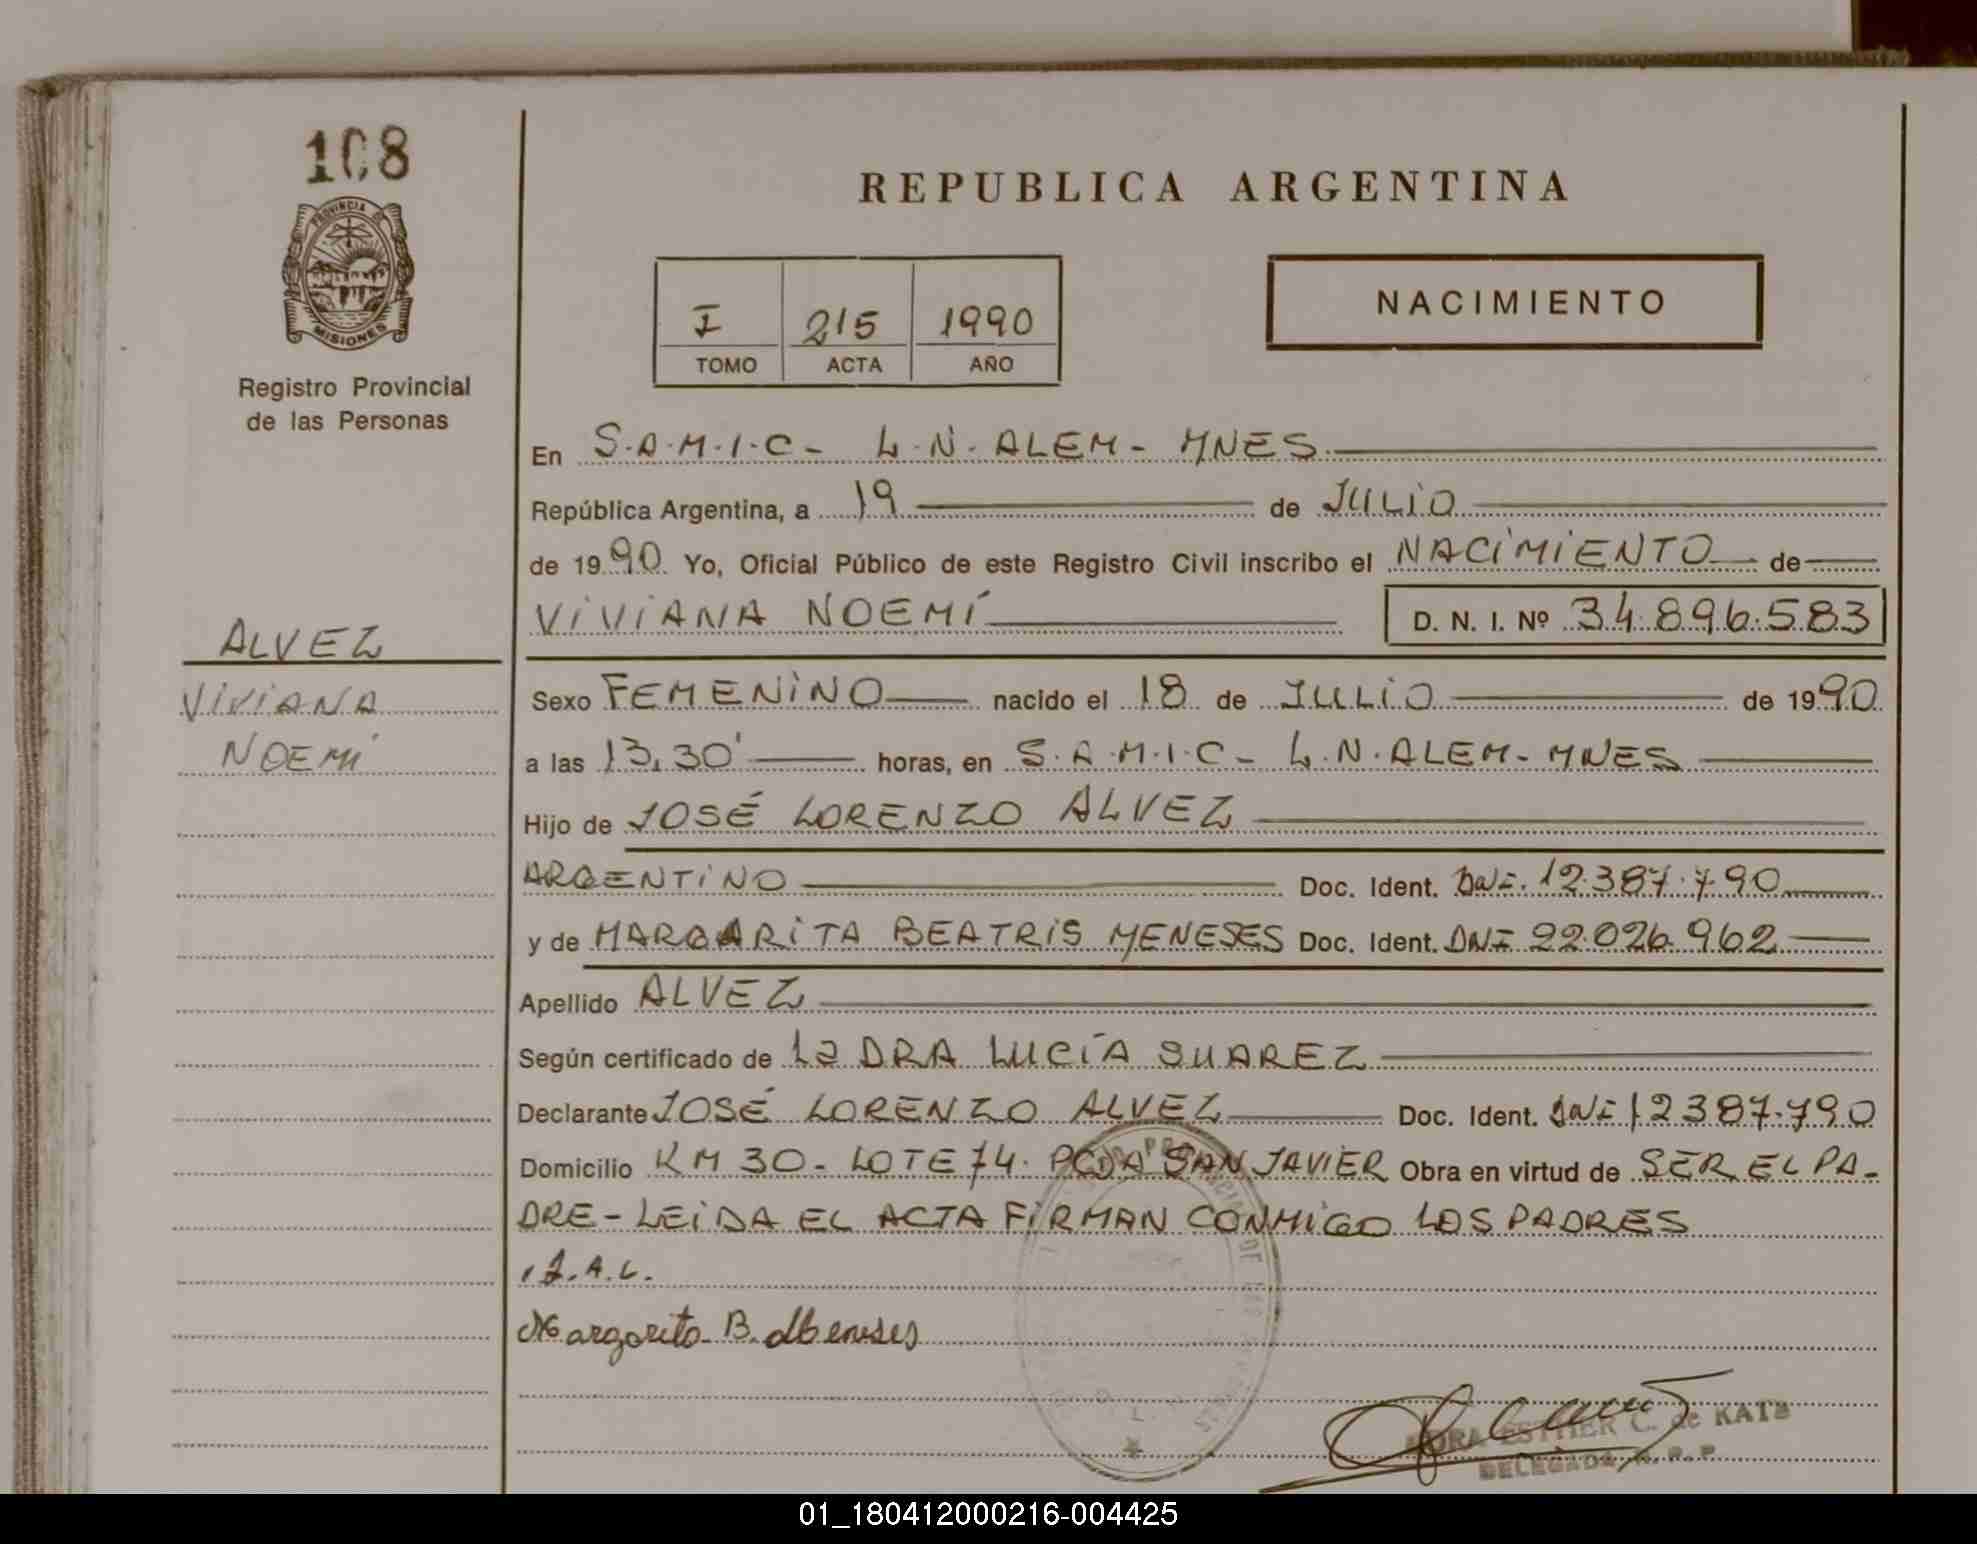 108
PROVINCIA DE
MISIONES
Registro Provincial
de las Personas
REPUBLICA ARGENTINA
I 215 1990
TOMO ACTA AÑO
NACIMIENTO
En S.A.M.I.C- L.N.ALEM- MNES
República Argentina, a 19 de JULIO
de 1990 Yo, Oficial Público de este Registro Civil inscribo el NACIMIENTO de
VIVIANA NOEMÍ D. N. I. Nº 34.896.583
ALVEZ
VIVIANA
NOEMÍ
Sexo FEMENINO nacido el 18 de JULIO de 1990
a las 13,30' horas, en S.A.M.I.C- L.N.ALEM- MNES
Hijo de JOSÉ LORENZO ALVEZ
ARGENTINO Doc. Ident. DNI. 12.387.790
y de MARGARITA BEATRIS MENESES Doc. Ident. DNI 22.026.962
Apellido ALVEZ
Según certificado de La DRA LUCÍA SUAREZ
Declarante JOSÉ LORENZO ALVEZ Doc. Ident. DNI 12387.790
Domicilio KM 30- LOTE 74. PCDA SAN JAVIER Obra en virtud de SER EL PA-
DRE- LEIDA EL ACTA FIRMAN CONMIGO LOS PADRES
J.A.L.
Margarita B. Meneses
ESTHER C. de KATZ
DELEGADA R.P.P
01_180412000216-004425